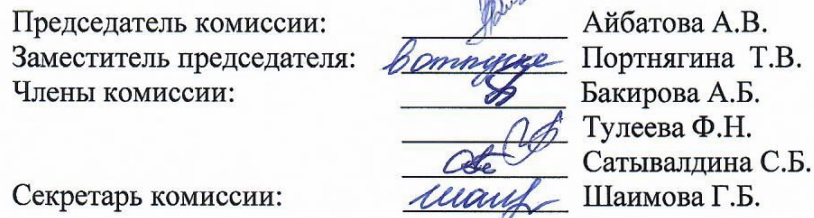 Председатель комиссии: Айбатова А.В.
Заместитель председателя: в отпуске Портнягина Т.В.
Члены комиссии: Бакирова А.Б.
Тулеева Ф.Н.
Сатывалдина С.Б.
Секретарь комиссии: Шаимова Г.Б.